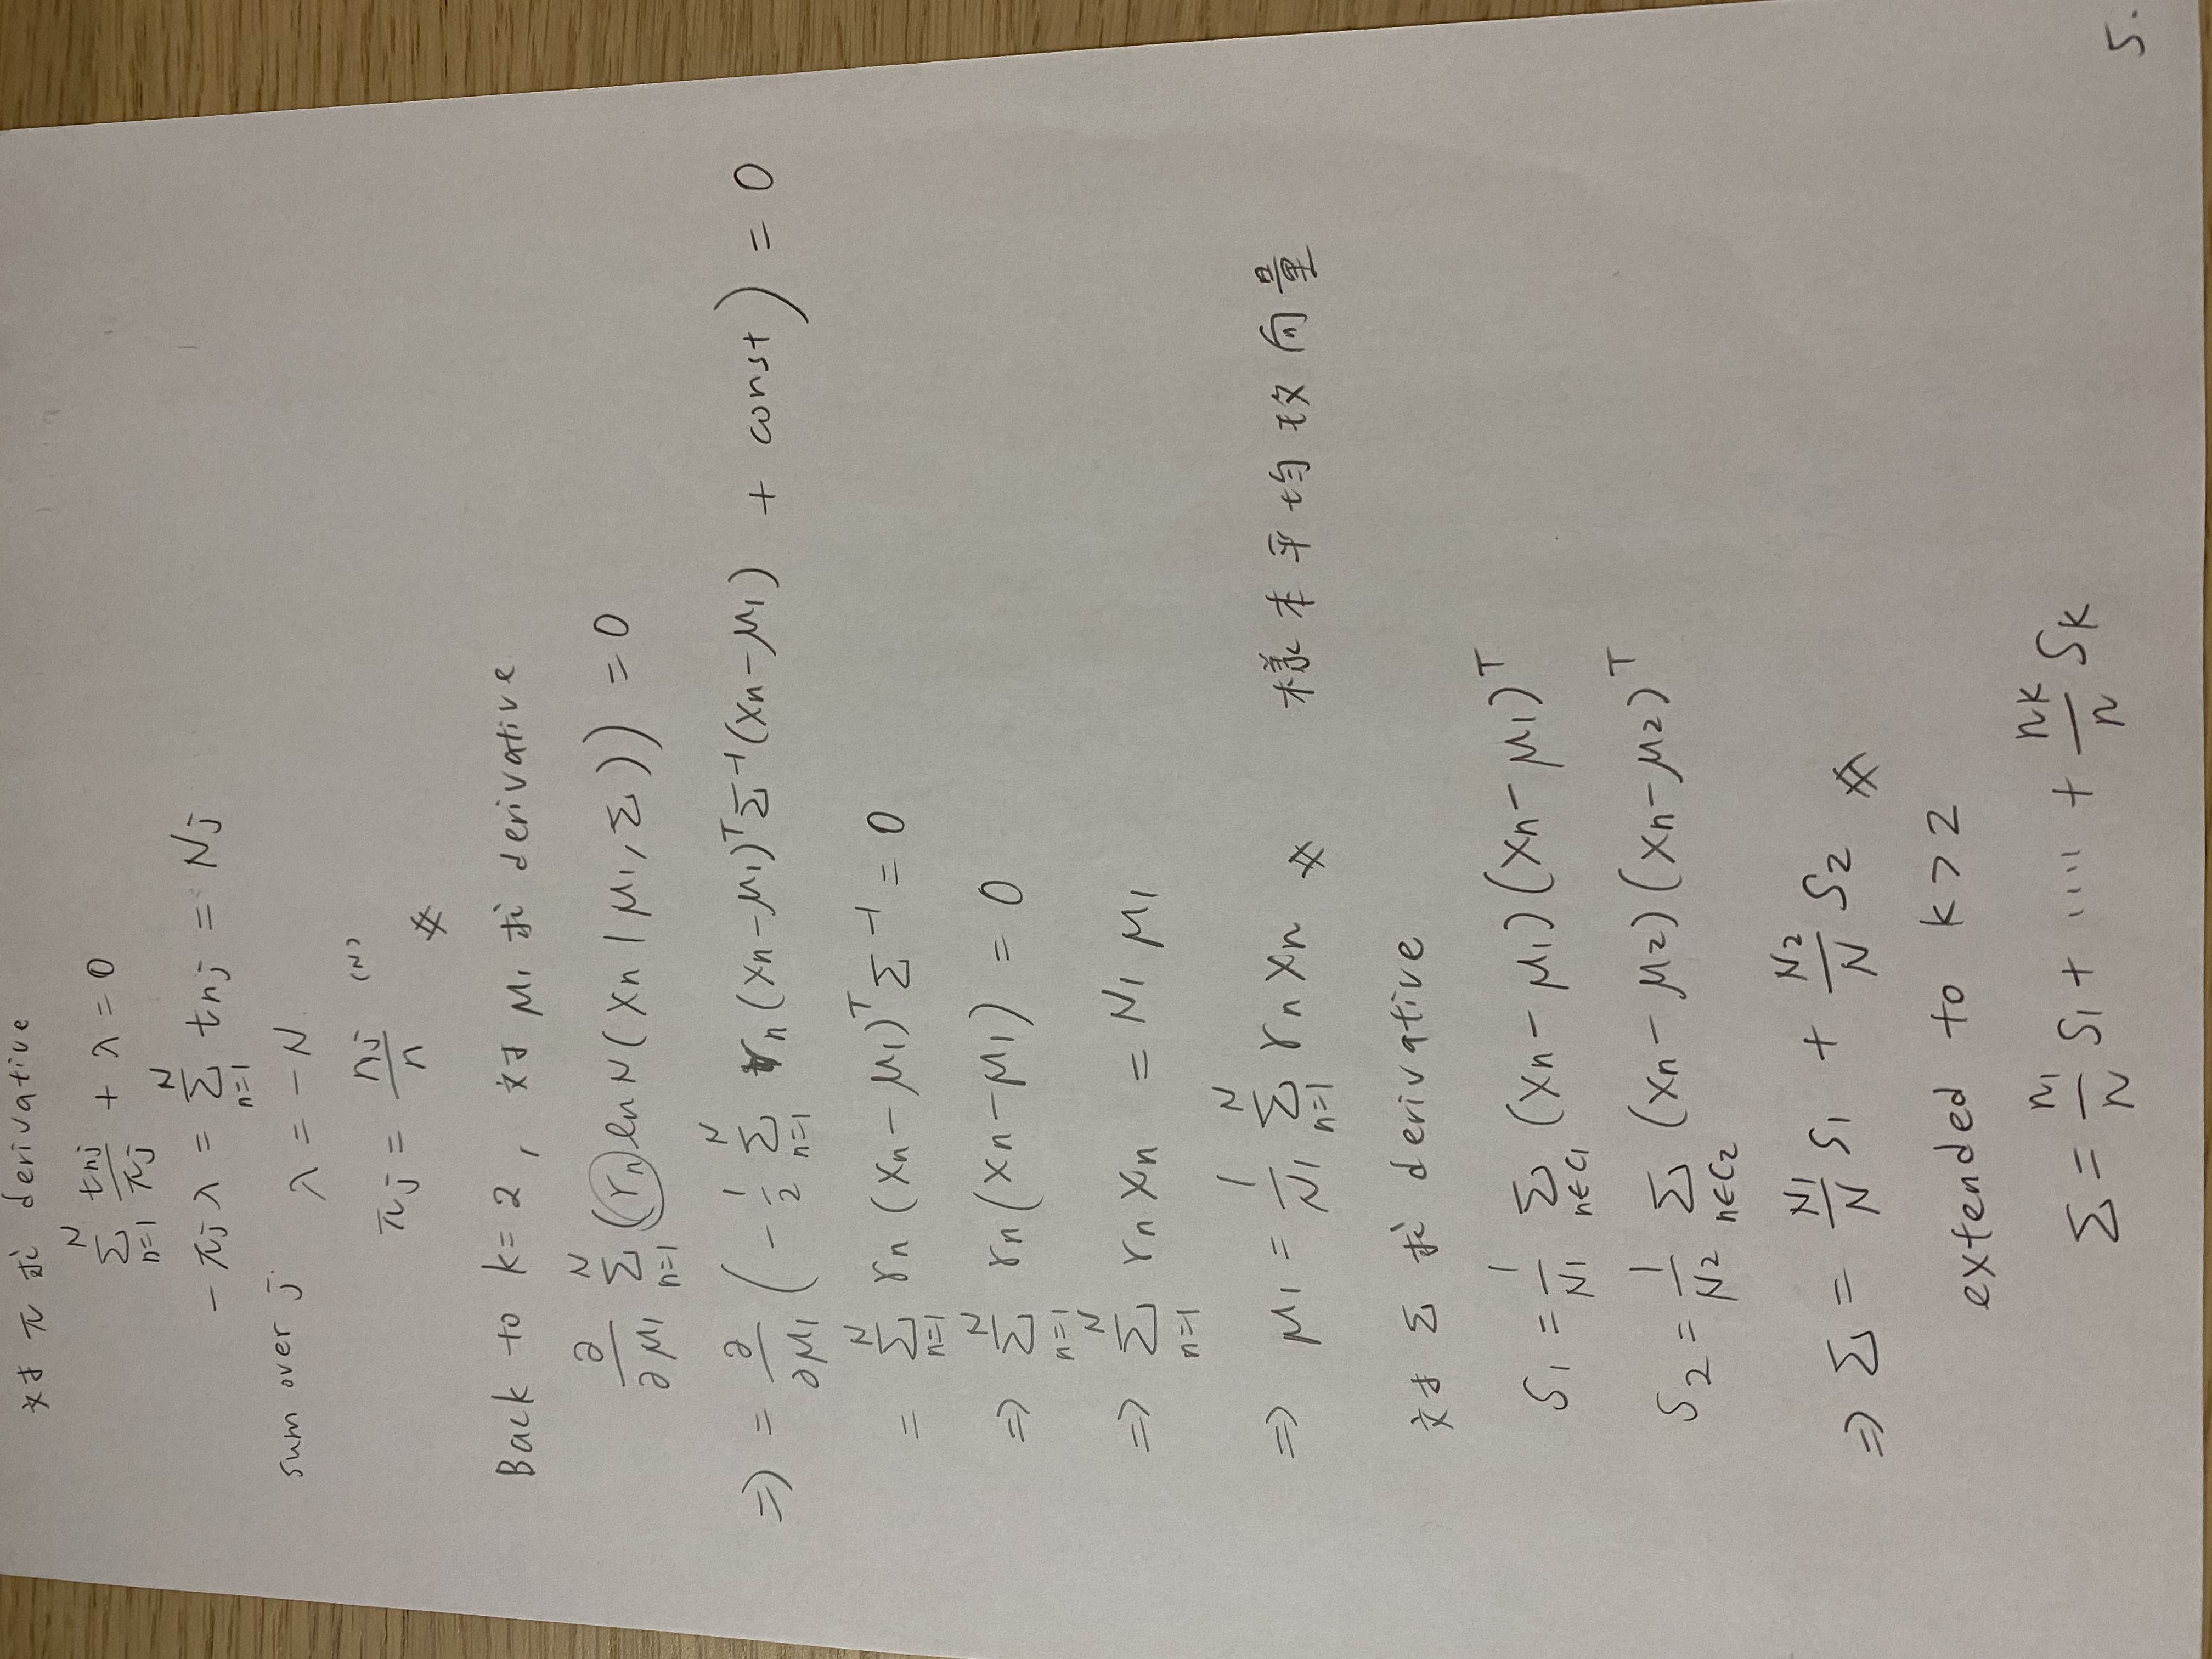 对 π 求 derivative
∑_{n=1}^{N} t_{nj}/π_j + λ = 0
-π_j λ = ∑_{n=1}^{N} t_{nj} = N_j
sum over j λ = -N
π_j = n_j/n (N) ※
Back to k=2, 对 μ_1 求 derivative
∂/∂μ_1 ∑_{n=1}^{N} (r_n ln N(x_n | μ_1, Σ)) = 0
⇒ = ∂/∂μ_1 (-1/2 ∑_{n=1}^{N} r_n (x_n-μ_1)^T Σ^{-1} (x_n-μ_1) + const) = 0
= ∑_{n=1}^{N} r_n (x_n-μ_1)^T Σ^{-1} = 0
⇒ ∑_{n=1}^{N} r_n (x_n-μ_1) = 0
⇒ ∑_{n=1}^{N} r_n x_n = N_1 μ_1
⇒ μ_1 = 1/N_1 ∑_{n=1}^{N} r_n x_n ※ 樣本平均 向量
对 Σ 求 derivative
S_1 = 1/N_1 ∑_{n∈C_1} (x_n-μ_1)(x_n-μ_1)^T
S_2 = 1/N_2 ∑_{n∈C_2} (x_n-μ_2)(x_n-μ_2)^T
⇒ Σ = N_1/N S_1 + N_2/N S_2 ※
extended to k>2
Σ = n_1/n S_1 + .... + n_k/n S_k
5.